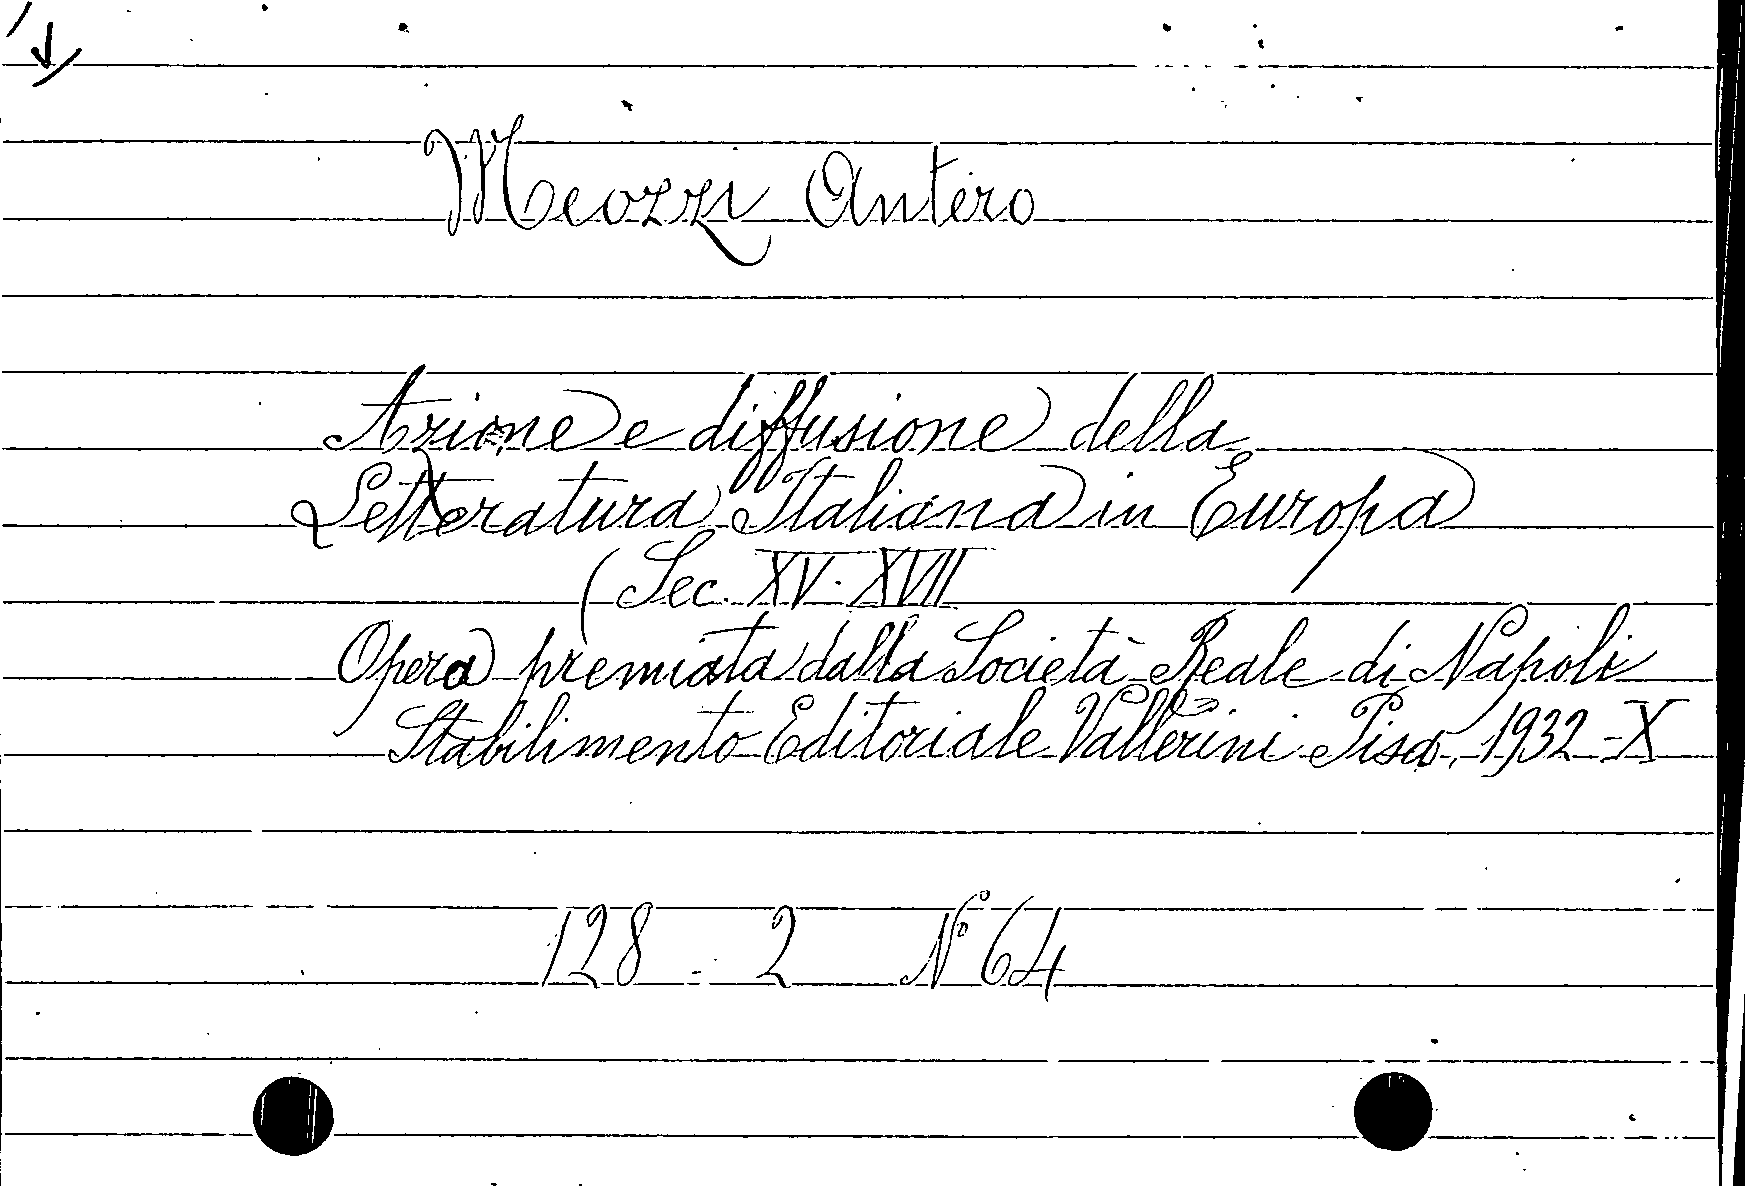 Meozzi Antero
Azione e diffusione della
Letteratura Italiana in Europa
(Sec. XV. XVII
Opera premiata dalla Società Reale di Napoli
Stabilimento Editoriale Vallerini. Pisa, 1932-X
128 - 2 N° 64